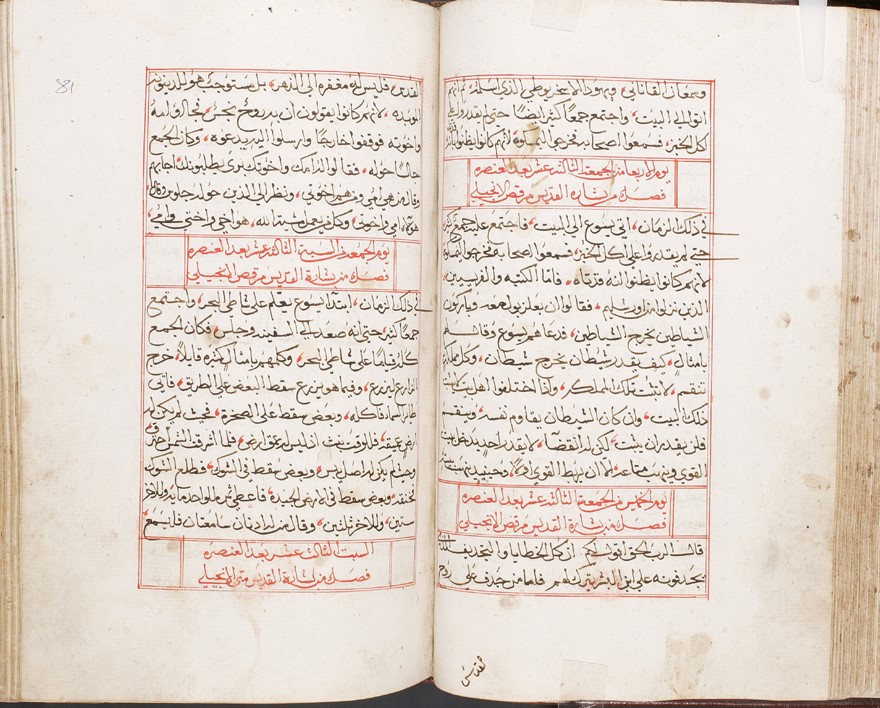 وسمعان القاناني، ويهوذا الاسخريوطي الذي اسلمه، ثم انهم
اتوا الى البيت، واجتمع جمعًا كثير ايضًا حتى لم يقدروا على
اكل الخبز، فسمعوا اصحابه فخرجوا ليمسكوه لانهم كانوا يظنوا انه
يوم الاربعا من الجمعة الثالثة عشر بعد العنصره
فصل من بشارة القديس مرقص الانجيلي
في ذلك الزمان، اتى يسوع الى البيت، فاجتمع عليه جمع كثير
حتى لم يقدروا على اكل الخبز، فسمعوا اصحابه فخرجوا ليمسكوه
لانهم كانوا يظنوا انه قد تاه، فاما الكتبه والفريسيين،
الذين نزلوا من اورشليم، فقالوا ان بعلزبول معه، وباركون
الشياطين يخرج الشياطين، فدعاهم يسوع وقال لهم
بامثال، كيف يقدر شيطان يخرج شيطان، وكل مملكة
تنقسم، لا تثبت تلك المملكه، واذا اختلفوا اهل بيت لا يثبت
ذلك البيت، وان كان الشيطان يقاوم نفسه، وينقسم
فلن يقدر ان يثبت، لكن له انقضا، لا يقدر احد يدخل بيت
القوي وينهب متاعه، الا ان يربط القوي اولًا، وحينيذ ينهب بيته
يوم الخميس من الجمعة الثالثة عشر بعد العنصره
فصل من بشارة القديس مرقص الانجيلي
قال الرب الحق اقول لكم، ان كل الخطايا والتجديف الذي
يجدفونه على ابن البشر يترك لهم، فاما من جدف على روح
القدس
القدس، فليس له مغفره الى الدهر، بل مستوجب هو للدينونه
الموبده، لانهم كانوا يقولون ان به روحُ نجسَ، فجا اليه امه
واخوته فوقفوا خارجًا وارسلوا اليه يدعوه، وكان الجمع
جالسًا حوله، فقالوا له امك واخوتك برى يطلبونك، اجابهم
وقال من هي امي ومن هم اخوتي، ونظر الى الذين حوله جلوس وقال
هولاء امي واخوتي، وكل من يعمل مشية الله، هو اخي واختي وامي،
يوم الجمعه من السبة الثالثة عشر بعد العنصره
فصل من بشارة القديس مرقص الانجيلي
في ذلك الزمان، ابتدا يسوع يعلّم على شاطي البحر، واجتمع
جمعًا كثير، حتى انه صعد الى السفينه وجلس، فكان الجمع
كله قيامًا على شاطي البحر، وكلمهم بامثال كثيره قايلًا، خرج
الزارع ليزرع، وفيما هو يزرع سقط البعض على الطريق، فاتى
طاير السما، فاكله، وبعض سقط على الصخرة، فحيث لم يكن له
ارض عميقه، فللوقت نبت اذ ليس له عمق ارض، فلما اشرقت الشمس احترق
وحيث لم يكن له اصل يبس، وبعض سقط في الشوك، فطلع الشوك
فخنقه، وبعض سقط في الارض الجيدة، فاعطى ثمر للواحد ماية وللاخر
ستين، وللاخر ثلثين، وقال من له اذنان سامعتان فليسمع
السبت الثالث عشر بعد العنصره
فصل من بشارة القديس متى الانجيلي